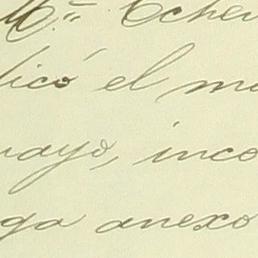 M.ª Echev
dicó el mo
rayo, inco
ga anexo